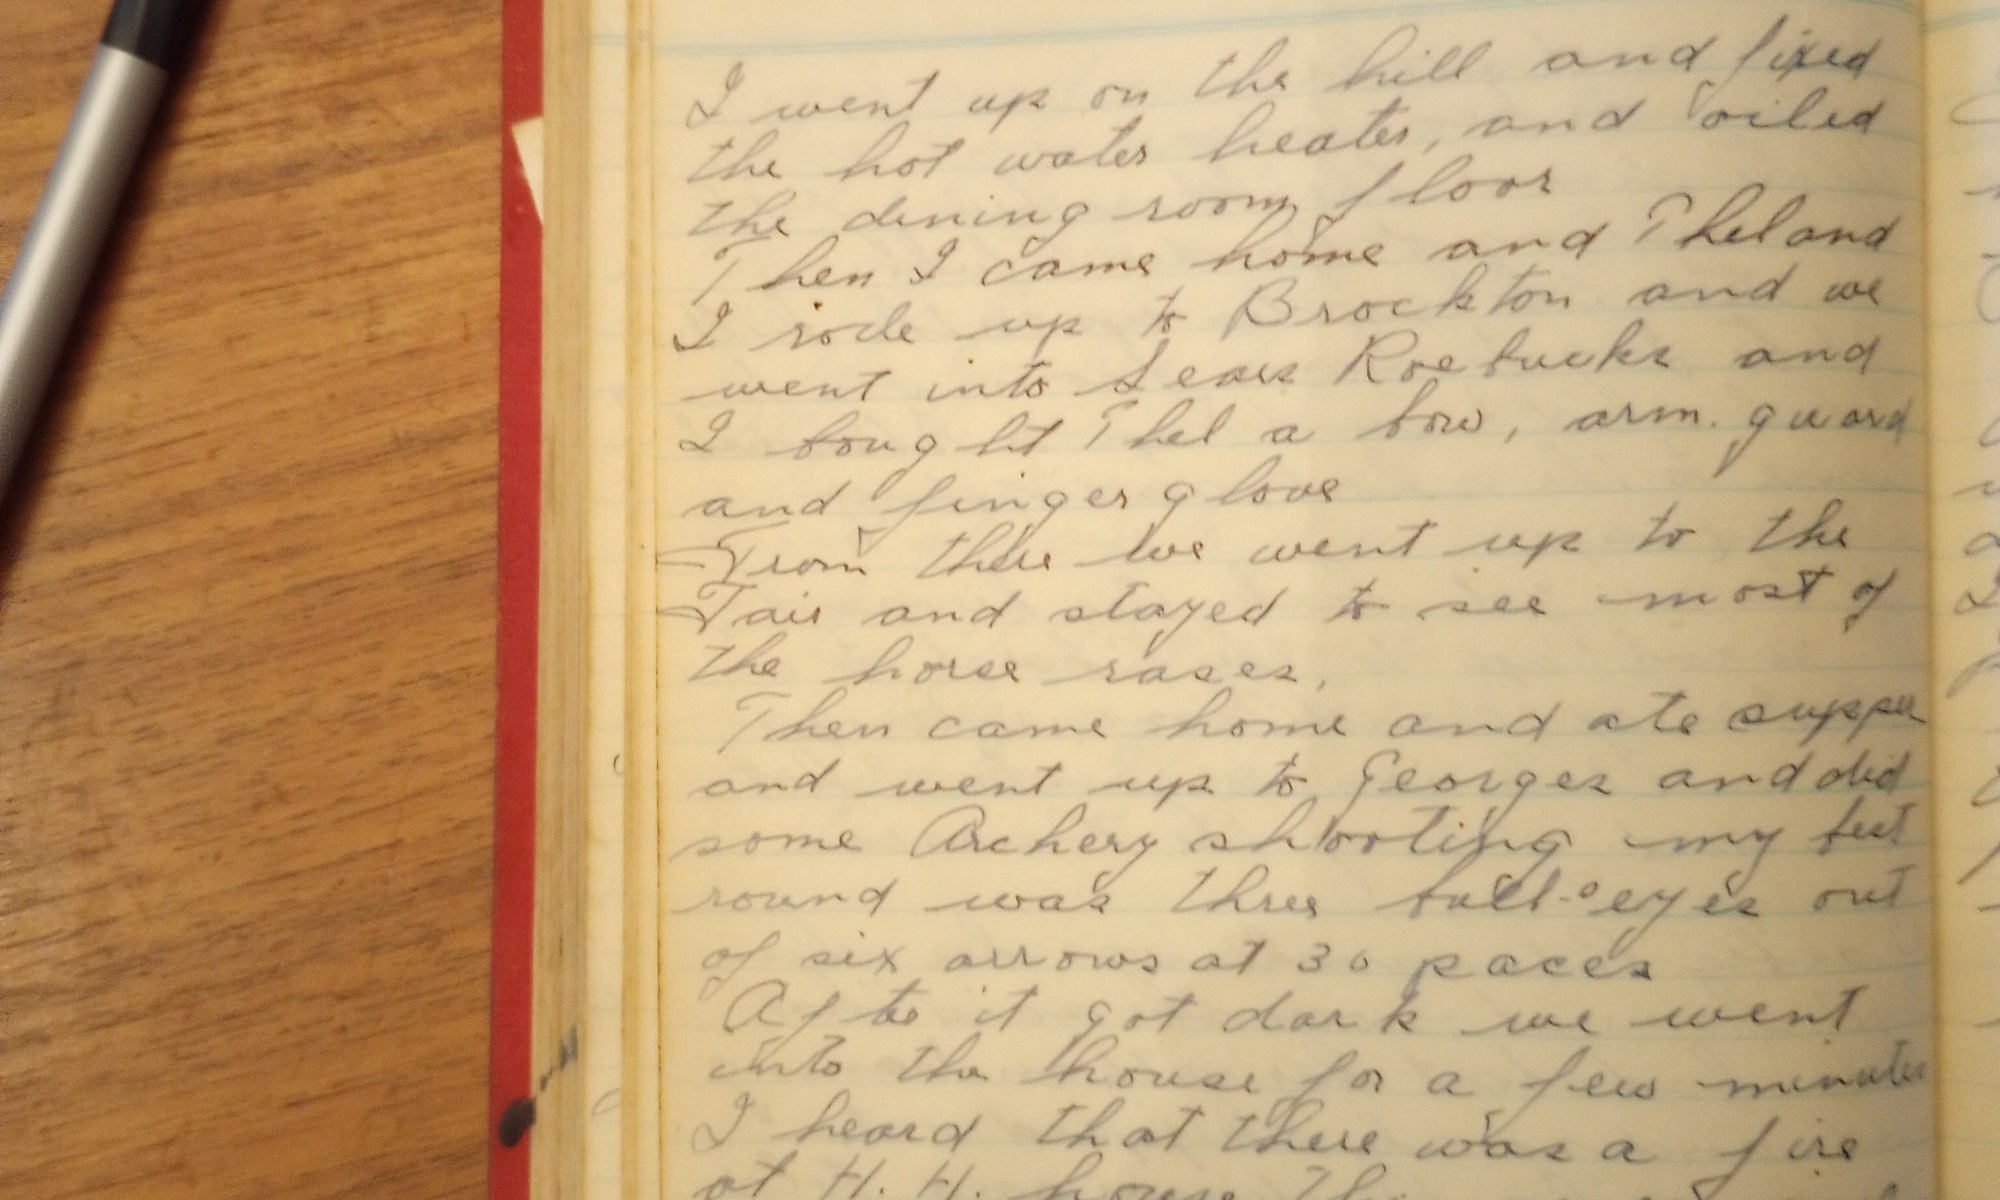 I went up on the hill and fixed
the hot water heater, and oiled
the dining room floor
Then I came home and Thel and
I rode up to Brockton and we
went into Sears Roebucks and
I bought Thel a bow, arm. guard
and finger glove
From there we went up to the
Fair and stayed to see most of
the horse races,
Then came home and ate supper
and went up to Georges and did
some Archery shooting my best
round was three bull-s eyes out
of six arrows at 30 paces
After it got dark we went
into the house for a few minutes
I heard that there was a fire
at H. H. house